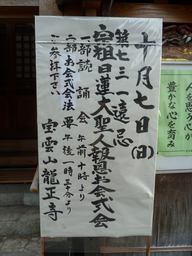 十月七日(日)
第七三一遠忌
宗祖日蓮大聖人報恩お会式会
一部読誦会 午前十時より
二部お会式会法要 午後一時三十分より
ご参拝下さい
宝雲山龍正寺
人を思う心が
豊かな心を育み